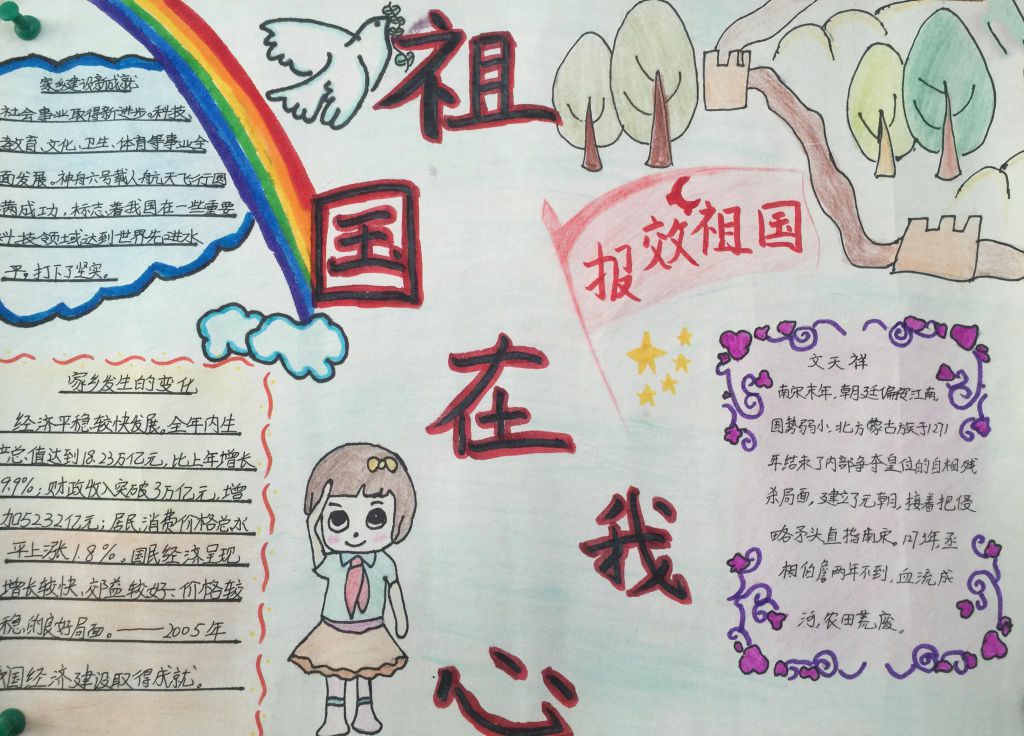 祖国在我心
家乡建设新成就
社会事业取得新进步。科技、
教育、文化、卫生、体育等事业全
面发展。神舟六号载人航天飞行圆
满成功，标志着我国在一些重要
科技领域达到世界先进水
平。打下了坚实。
报效祖国
家乡发生的变化
经济平稳较快发展。全年内生
产总值达到18.23万亿元，比上年增长
9.9%；财政收入突破3万亿元，增
加5232亿元；居民消费价格总水
平上涨1.8%。国民经济呈现
增长较快、效益较好、价格较
稳的良好局面。——2005年
我国经济建设取得成就。
文天祥
南宋末年，朝廷偏安江南，
国势弱小，北方蒙古族于1271
年结束了内部争夺皇位的自相残
杀局面，建立了元朝，接着把侵
略矛头直指南宋。1273年丞
相伯颜两年不到，血流成
河，农田荒废。